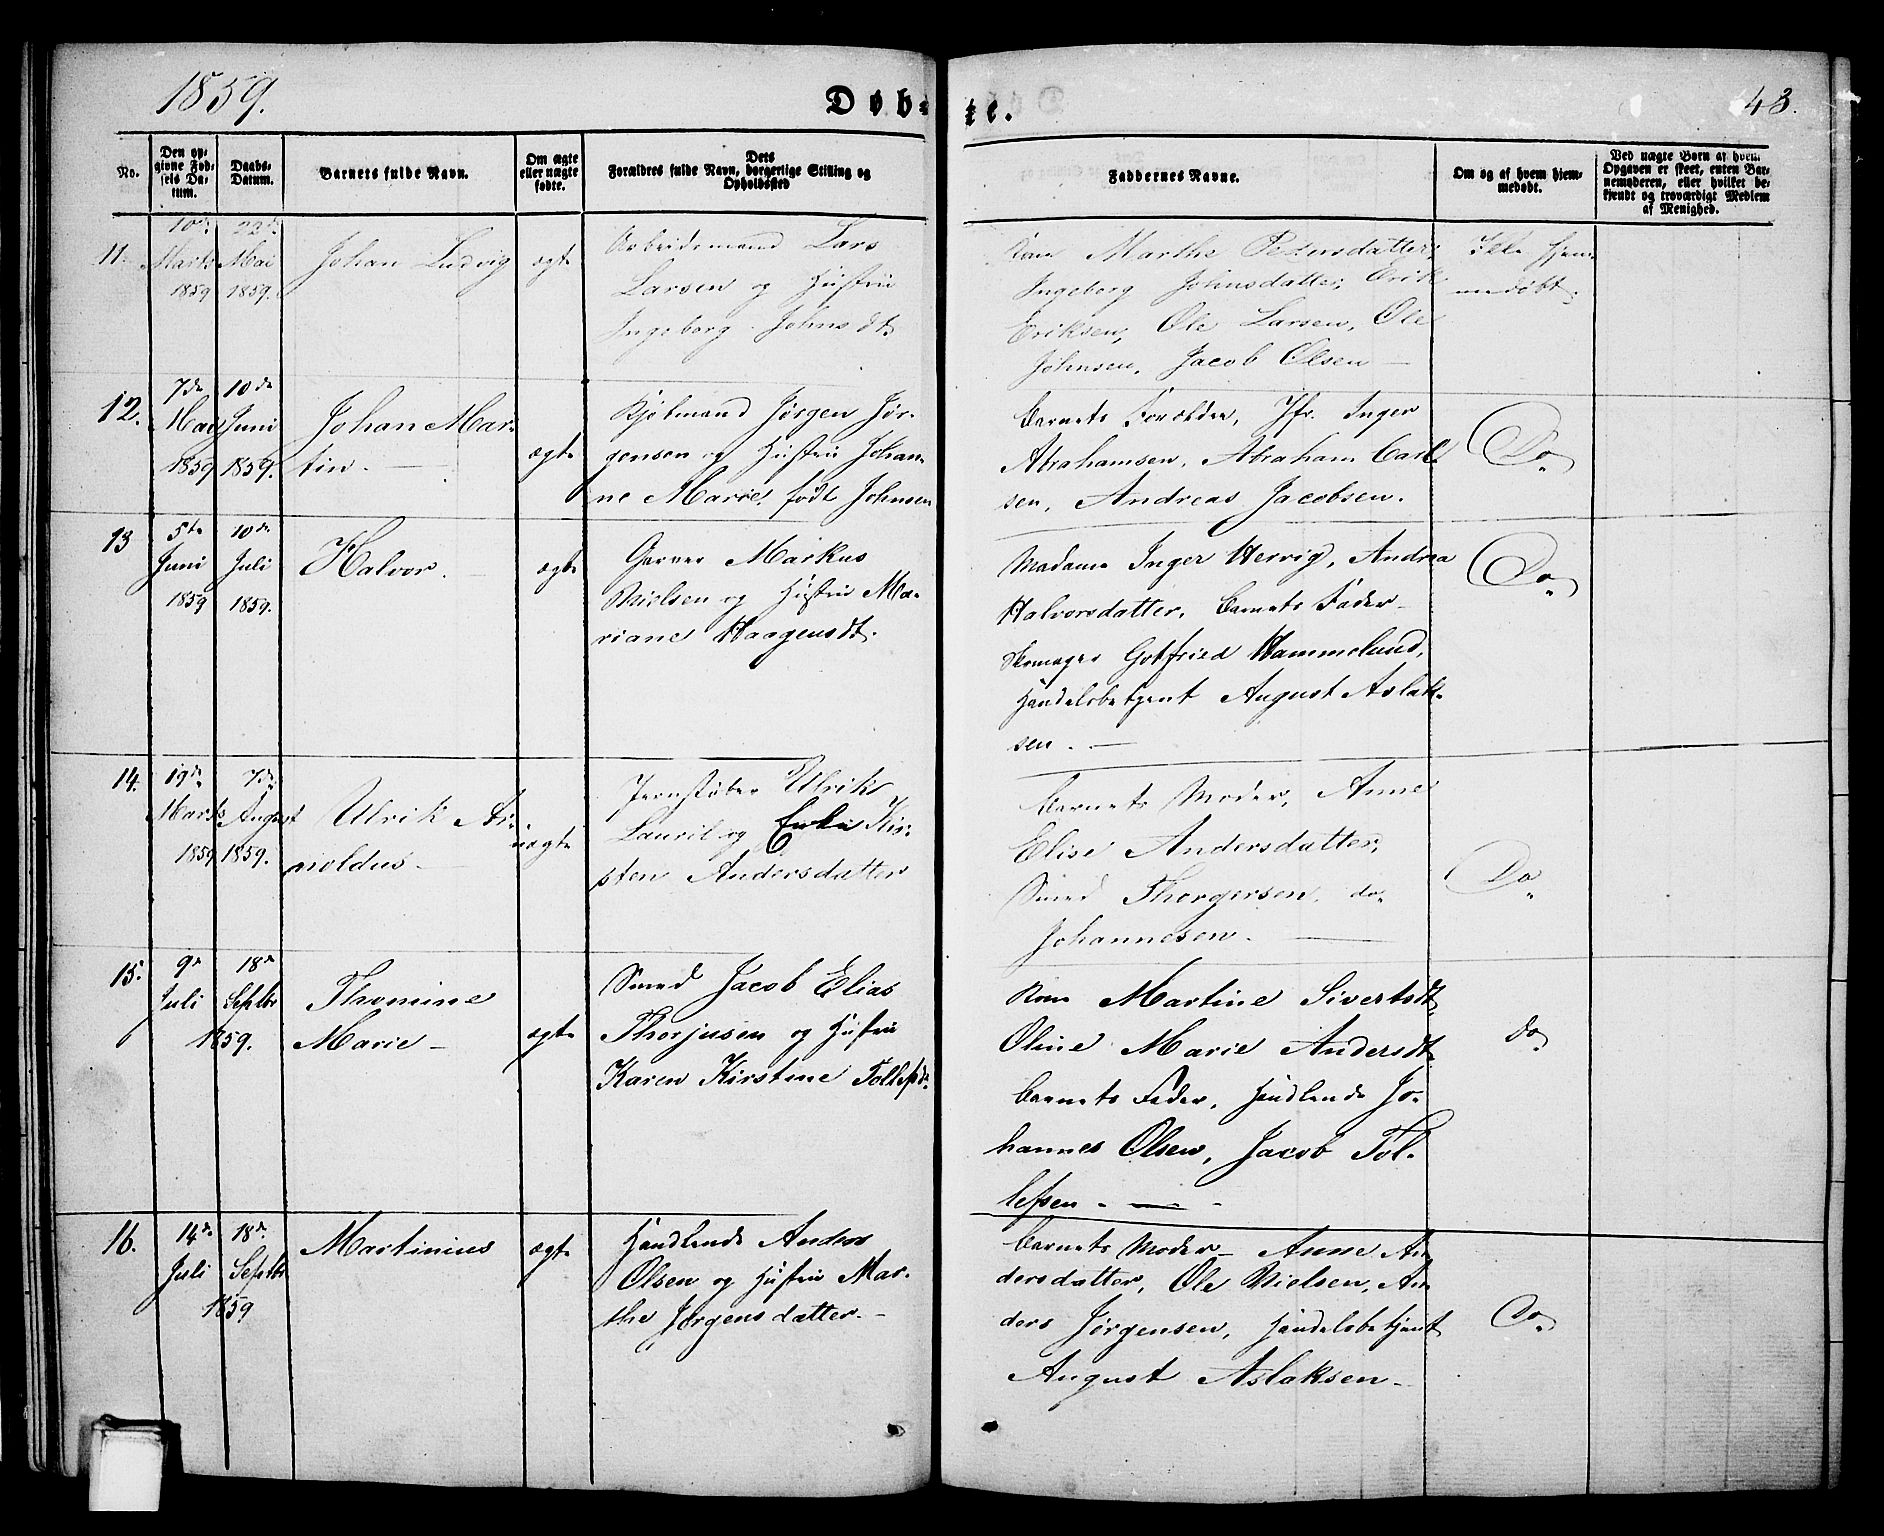 1859.
Døb-
te.
43.
No.
Den op-
givne Fød-
sels Da-
tum.
Daabs-
Datum.
Barnets fulde Navn.
Om ægte
eller uægte
fødte.
Dets
Forældres fulde Navn, borgerlige Stilling og
Opholdssted
Faddernes Navne.
Om og af hvem hjem-
medøbt.
Ved uægte Børn af hvem
Opgaven er skeet, enten Bar-
nemoderen, eller hvilket be-
kjendt og troværdigt Medlem
af Menighed.
11.
10de
Marts
1859
22de
Mai
1859.
Johan Ludvig
ægte
Arbeidsmand Lars
Larsen og Hustru
Ingeborg Johnsdt.
Kone Marthe
Ingeborg Johnsdatter, Erik
Eriksen, Ole Larsen, Ole
Johnsen, Jacob Olsen —
Ikke hjem-
medøbt.
12.
7de
Mai
1859
10de
Juni
1859.
Johan Mar-
tin. —
ægte
Kjøbmand Jørgen Jør-
gensen og Hustru Johan-
ne Marie, født Johnsen
Barnets Forældre, Jfr. Inger
Abrahamsen, Abraham Carl-
sen, Andreas Jacobsen.
Do.
13
5te
Juni
1859
10de
Juli
1859.
Halvor. —
ægte
Garver Markus
Nielsen og Hustru Ma-
riane Haagensdt.
Madame Inger Hervig, Andrea
Halvorsdatter, Barnets Fader —
Skomager Gotfried Hammelund,
Handelsbetjent August Aslak-
sen. —
Do.
14.
19de
Marts
1859
7de
August
1859.
Ulrik Ar-
noldus —
uægte
Jernstøber Ulrik
Laurit og Enke Kir-
sten Andersdatter
Barnets Moder, Anne
Elise Andersdatter,
Smed Thorgersen, do.
Johannesen. —
Do.
15.
9de
Juli
18de
Septbr
1859.
Thomine
Marie —
ægte
Smed Jacob Elias
Thorjusen og Hustru
Karen Kirstine Tollefsd.
Kone Martine Sivertsdt,
Oline Marie Andersdt.
Barnets Fader, Handlende Jo-
hannes Olsen, Jacob Tol-
lefsen. —
do.
16.
14de
Juli
18de
Septbr
1859
Martinius
ægte
Handlende Anders
Olsen og Hustru Mar-
the Jørgensdatter. —
Barnets Moder — Anne An-
dersdatter, Ole Nielsen, An-
ders Jørgensen, Handelsbetjent
August Aslaksen —
Do.